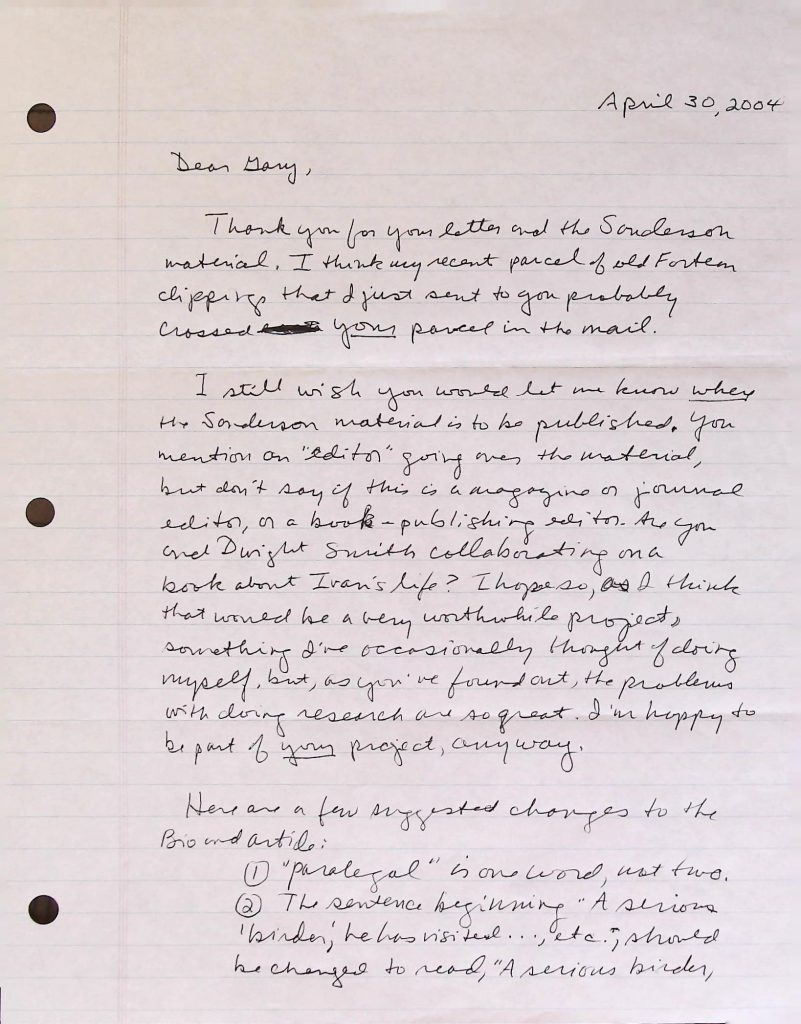 April 30, 2004
Dear Gary,
Thank you for your letter and the Sanderson
material. I think my recent parcel of old Fortean
clippings that I just sent to you probably
crossed your parcel in the mail.
I still wish you would let me know where
the Sanderson material is to be published. You
mention an "editor" going over the material,
but don't say if this is a magazine or journal
editor, or a book-publishing editor. Are you
and Dwight Smith collaborating on a
book about Ivan's life? I hope so, as I think
that would be a very worthwhile project,
something I've occasionally thought of doing
myself, but, as you've found out, the problems
with doing research are so great. I'm happy to
be part of your project, anyway.
Here are a few suggested changes to the
Bio and article:
① "paralegal" is one word, not two.
② The sentence beginning "A serious
'birder,' he has visited..., etc.", should
be changed to read, "A serious birder,